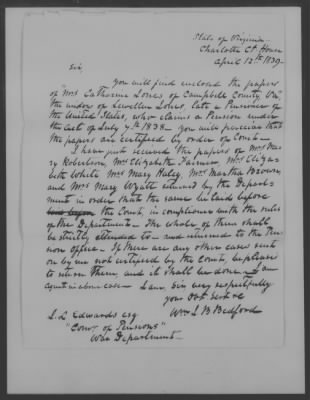 State of Virginia
Charlotte Ct House
April 12th 1839.
Sir
you will find enclosed the papers
of Mrs Catharine Jones of Campbell County Va
the widow of Lewellen Jones, late a Pensioner of
the United States, who claims a Pension under
the Act of July 7th 1838 - you will perceive that
the papers are certified by order of Court -
I have just received the papers of Mrs Ma-
ry Robertson, Mrs Elizabeth Farmer, Mrs Eliza-
beth White Mrs Mary Haley, Mrs Martha Brown,
and Mrs Mary Wyatt returned by the Depart-
ment in order that the same be laid before
the Court, in compliance with the rules
of the Department - The whole of them shall
be strictly attended to - and returned to the Pen-
sion Office - If there are any other cases sent
on by me not certified by the Court, be please
to return them, and it shall be done - I am
agent in above case - I am, Sir very respectfully
your Obt Servt
Wm L B Bedford
J. L. Edwards esq
"Comr of Pensions"
War Department -